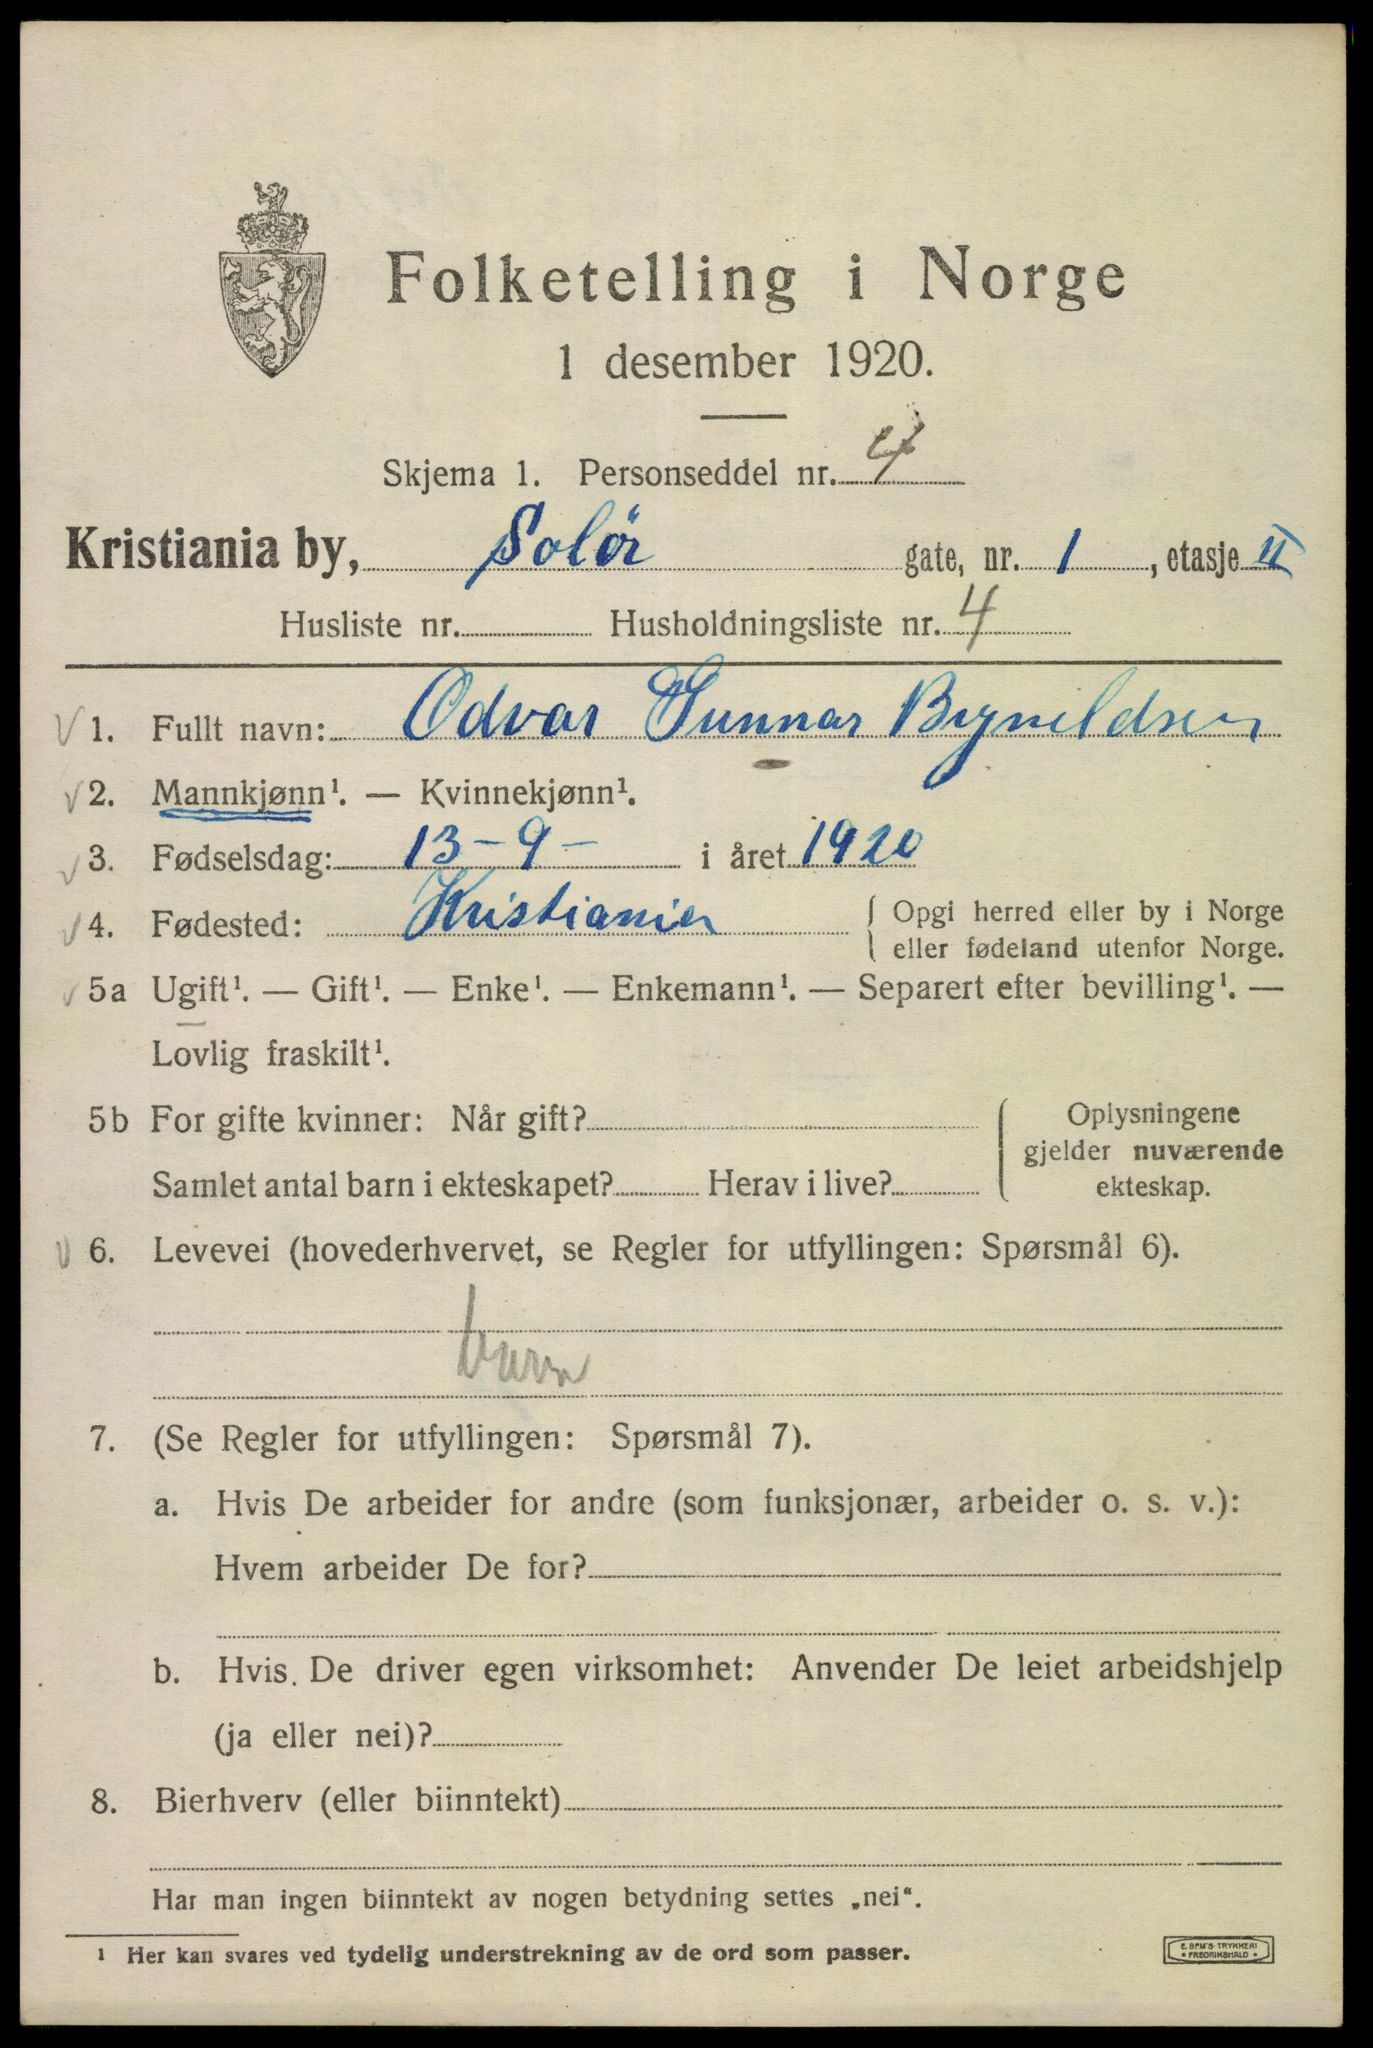 Folketelling i Norge
1 desember 1920.
Skjema 1. Personseddel nr. 4
Kristiania by, Solör gate, nr. 1, etasje II
Husliste nr. Husholdningsliste nr. 4
1. Fullt navn: Odvar Gunnar Brynildsen
2. Mannkjønn¹. — Kvinnekjønn¹.
3. Fødselsdag: 13-9- i året 1920
4. Fødested: Kristiania { Opgi herred eller by i Norge
eller fødeland utenfor Norge.
5a Ugift¹. — Gift¹. — Enke¹. — Enkemann¹. — Separert efter bevilling¹. —
Lovlig fraskilt¹.
5b For gifte kvinner: Når gift? Oplysningene
gjelder nuværende
Samlet antal barn i ekteskapet? Herav i live? ekteskap.
6. Levevei (hovederhvervet, se Regler for utfyllingen: Spørsmål 6).
barn
7. (Se Regler for utfyllingen: Spørsmål 7).
a. Hvis De arbeider for andre (som funksjonær, arbeider o. s. v.):
Hvem arbeider De for?
b. Hvis De driver egen virksomhet: Anvender De leiet arbeidshjelp
(ja eller nei)?
8. Bierhverv (eller biinntekt)
Har man ingen biinntekt av nogen betydning settes „nei“.
¹ Her kan svares ved tydelig understrekning av de ord som passer.
E. SEM'S TRYKKERI
• FREDRIKSHALD •